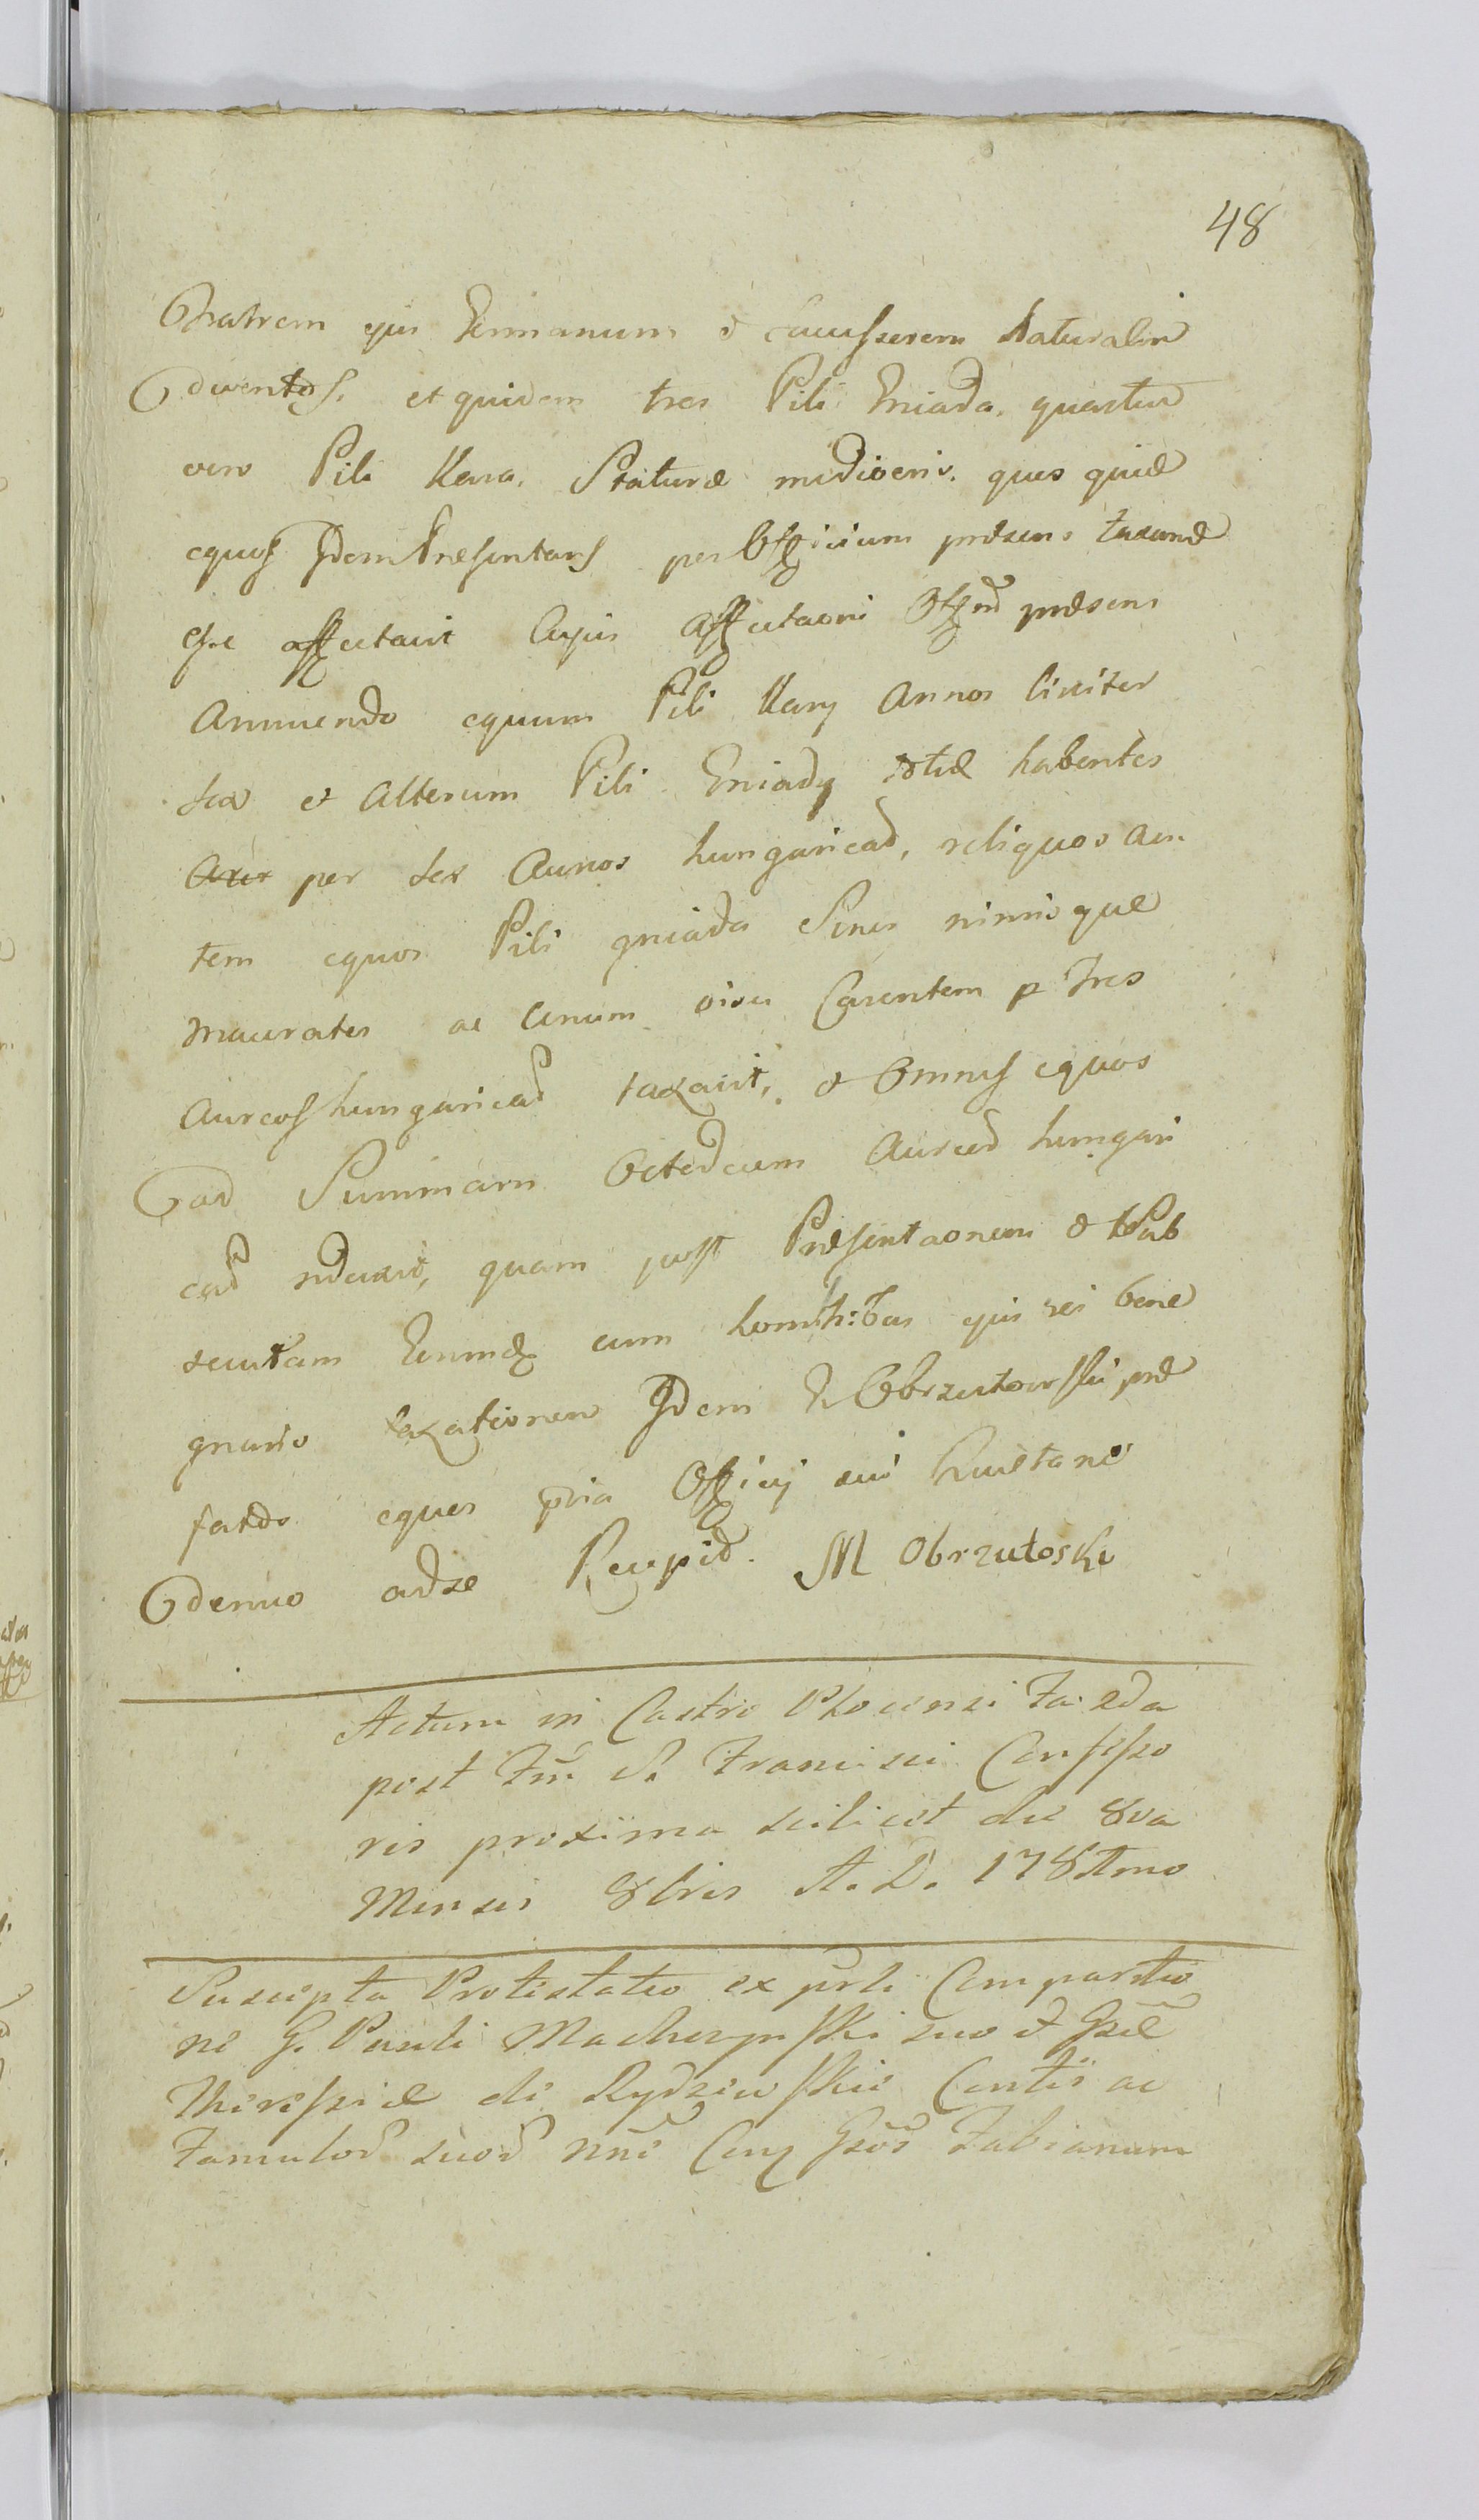 48
Fratrem ejus Germanum & Successorem Naturalem
devent os. et quidem tres Pili Gniada, quartus
vero Pili Kara, Staturæ mediocris. quos quid
equos Idem Præsentans per Officium præsens taxand
esse affectavit Cujus affectaoni Offm præsens
Annuendo equum Pili Kary Annos Circiter
sex et Alterum Pili Gniady totid habentes
per sex Aureos hungaricad, reliquos au
tem equos Pili gniada Senes nimis que
macratos ac Unum visu Carentem p tres
Aureos hungaricad taxavit, & Omnes equos
ad Summam Octodecum Aureod hungari
cad reduxit, quam post Præsentaonem & Sub
secutam Eorumdq cum hominibus ejus rei bene
gnaris taxationem Idem G Obrzutowski præ
fatos equos pria Officij sui Quietane
denuo ad se Recepid. M Obrzutoski
Actum in Castro Plocensi Fa 2da
post Fm S. Francisci Confesso
ris proxima scilicet die 8va
Mensis 8bris A. D. 178
Suscepta Protestatio ex prli Comparitio
ne G. Pauli Macherzynski suo & Gsæ
Theressiæ de Rydzewskie Contis ac
Famulod suod nne Cong Gsos Fabianum